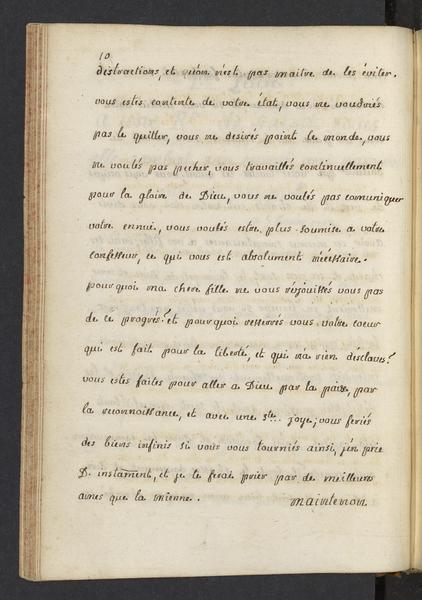 10
distractions, et qu'on n'est pas maitre de les éviter.
vous estes contente de votre état, vous ne voudriés
pas le quitter, vous ne desirés point le monde, vous
ne voulés pas pecher, vous travaillés continuellement
pour la gloire de Dieu, vous ne voulés pas comuniquer
votre ennui, vous voulés estre plus soumise a votre
confesseur, ce qui vous est absolument nécéssaire.
pourquoi ma chere fille ne vous réjouissés vous pas
de ce progrés? et pourquoi resserrés vous votre cœur
qui est fait pour la liberté, et qui n'a rien d'esclave?
vous estes faites pour aller a Dieu par la paix, par
la reconnoissance, et avec une ste. joye; vous feriés
des biens infinis si vous vous tourniés ainsi, j'en prie
D. instamment, et je le ferai prier par de meilleures
ames que la mienne.
maintenon